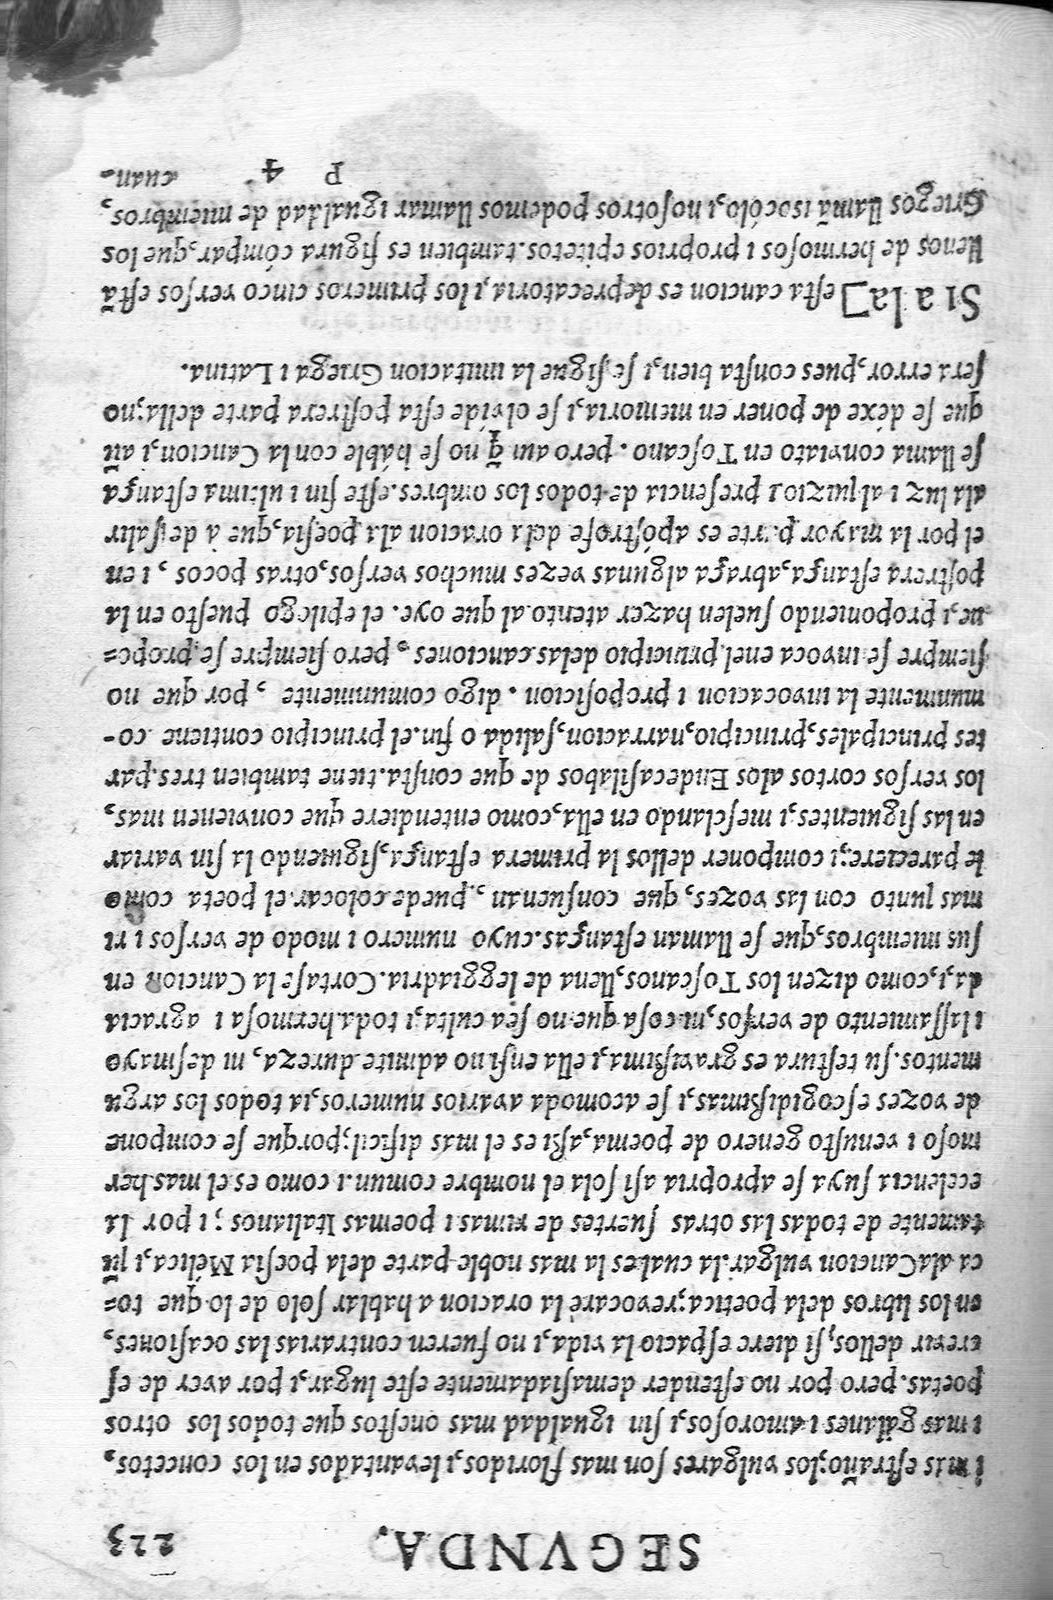 SEGVNDA. 223
i mas estraño; los vulgares son mas floridos, i levantados en los concetos,
i mas galanes i amorosos, i sin igualdad mas onestos que todos los otros
poetas. pero por no estender demasiadamente este lugar, i por aver de es
crevir dellos, si diere espacio la vida, i no fueren contrarias las ocasiones,
en los libros dela poetica; revocarè la oracion a hablar solo de lo que to=
ca ala Cancion vulgar. la cual es la mas noble parte dela poesia Mélica, i jũ
tamente de todas las otras suertes de rimas i poemas Italianos; i por la
ecelencia suya se apropria asi sola el nombre comun. i como es el mas her
moso i venusto genero de poema, assi es el mas dificil; porque se compone
de vozes escogidissimas, i se acomoda avarios numeros, i a todos los argu
mentos. su testura es gravissima, i ella ensi no admite dureza, ni desmayo
i lassamiento de versos, ni cosa que no sea culta, i toda hermosa i agracia
da, i, como dizen los Toscanos, llena de leggiadria. Cortase la Cancion en
sus miembros, que se llaman estanças. cuyo numero i modo de versos i ri
mas junto con las vozes, que consuenan, puede colocar el poeta como
le pareciere; i componer dellos la primera estança, siguiendo la sin variar
en las siguientes, i mesclando en ella, como entendiere que convienen mas,
los versos cortos alos Endecasilabos de que consta. tiene tambien tres par
tes principales, principio, narracion, salida o fin. el principio contiene co-
munmente la invocacion i proposicion. digo comunmente, por que no
siempre se invoca enel principio delas canciones. pero siempre se propo=
ne, i proponiendo suelen hazer atento al que oye. el epilogo puesto en la
postrera estança, abraça algunas vezes muchos versos, otras pocos, i en
el por la mayor parte es apóstrofe dela oracion ala poesia, que à de salir
ala luz i al juizio i presencia de todos los ombres. este fin i ultima estança
se llama comiato en Toscano. pero aun q̃ no se háble con la Cancion, i aũ
que se déxe de poner en memoria, i se olvide esta postrera parte della; no
sera error, pues consta bien, i se sigue la imitacion Griega i Latina.
Si a la] esta cancion es deprecatoria, i los primeros cinco versos estã
llenos de hermosos i proprios epitetos. tambien es figura cómpar, que los
Griegos llamã isocólo, i nosotros podemos llamar igualdad de miembros,
P 4 cuan-